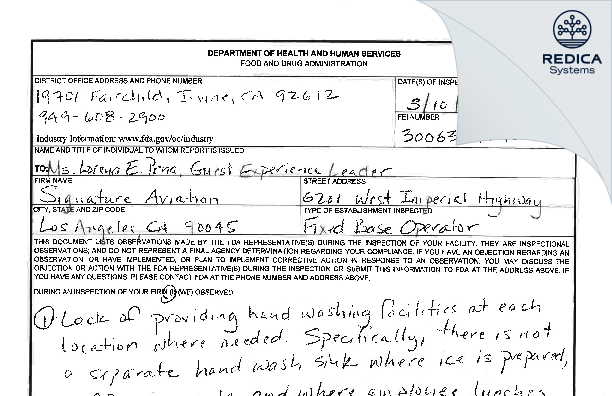 REDICA
Systems
DEPARTMENT OF HEALTH AND HUMAN SERVICES
FOOD AND DRUG ADMINISTRATION
DISTRICT OFFICE ADDRESS AND PHONE NUMBER
DATE(S) OF INSPE
19701 Fairchild, Irvine, CA 92612
949-608-2900
3/10
FEI NUMBER
Industry Information: www.fda.gov/oc/industry
30063
NAME AND TITLE OF INDIVIDUAL TO WHOM REPORT IS ISSUED
TO: Ms. Lorena E. Pena, Guest Experience Leader
FIRM NAME
STREET ADDRESS
Signature Aviation
6201 West Imperial Highway
CITY, STATE AND ZIP CODE
TYPE OF ESTABLISHMENT INSPECTED
Los Angeles CA 90045
Fixed Base Operator
THIS DOCUMENT LISTS OBSERVATIONS MADE BY THE FDA REPRESENTATIVE(S) DURING THE INSPECTION OF YOUR FACILITY. THEY ARE INSPECTIONAL
OBSERVATIONS; AND DO NOT REPRESENT A FINAL AGENCY DETERMINATION REGARDING YOUR COMPLIANCE. IF YOU HAVE AN OBJECTION REGARDING AN
OBSERVATION, OR HAVE IMPLEMENTED, OR PLAN TO IMPLEMENT CORRECTIVE ACTION IN RESPONSE TO AN OBSERVATION, YOU MAY DISCUSS THE
OBJECTION OR ACTION WITH THE FDA REPRESENTATIVE(S) DURING THE INSPECTION OR SUBMIT THIS INFORMATION TO FDA AT THE ADDRESS ABOVE. IF
YOU HAVE ANY QUESTIONS, PLEASE CONTACT FDA AT THE PHONE NUMBER AND ADDRESS ABOVE.
DURING AN INSPECTION OF YOUR FIRM (I) (WE) OBSERVED
① Lack of providing hand washing facilities at each
location where needed. Specifically, there is not
a separate hand wash sink where ice is prepared,
and where employee lunches